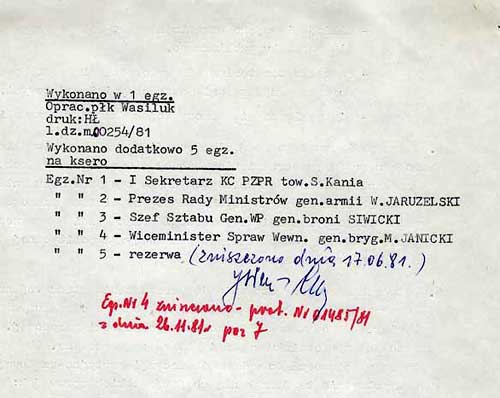 Wykonano w 1 egz.
Oprac.płk Wasiluk
druk:HŁ
l.dz.m.00254/81
Wykonano dodatkowo 5 egz.
na ksero
Egz.Nr 1 - I Sekretarz KC PZPR tow.S.Kania
" " 2 - Prezes Rady Ministrów gen.armii W.JARUZELSKI
" " 3 - Szef Sztabu Gen.WP gen.broni SIWICKI
" " 4 - Wiceminister Spraw Wewn. gen.bryg.M.JANICKI
" " 5 - rezerwa (zniszczono dnia 17.06.81.)
Egz.Nr 4 zniszczono - prot. Nr 01485/81
z dnia 26.11.81r poz 7